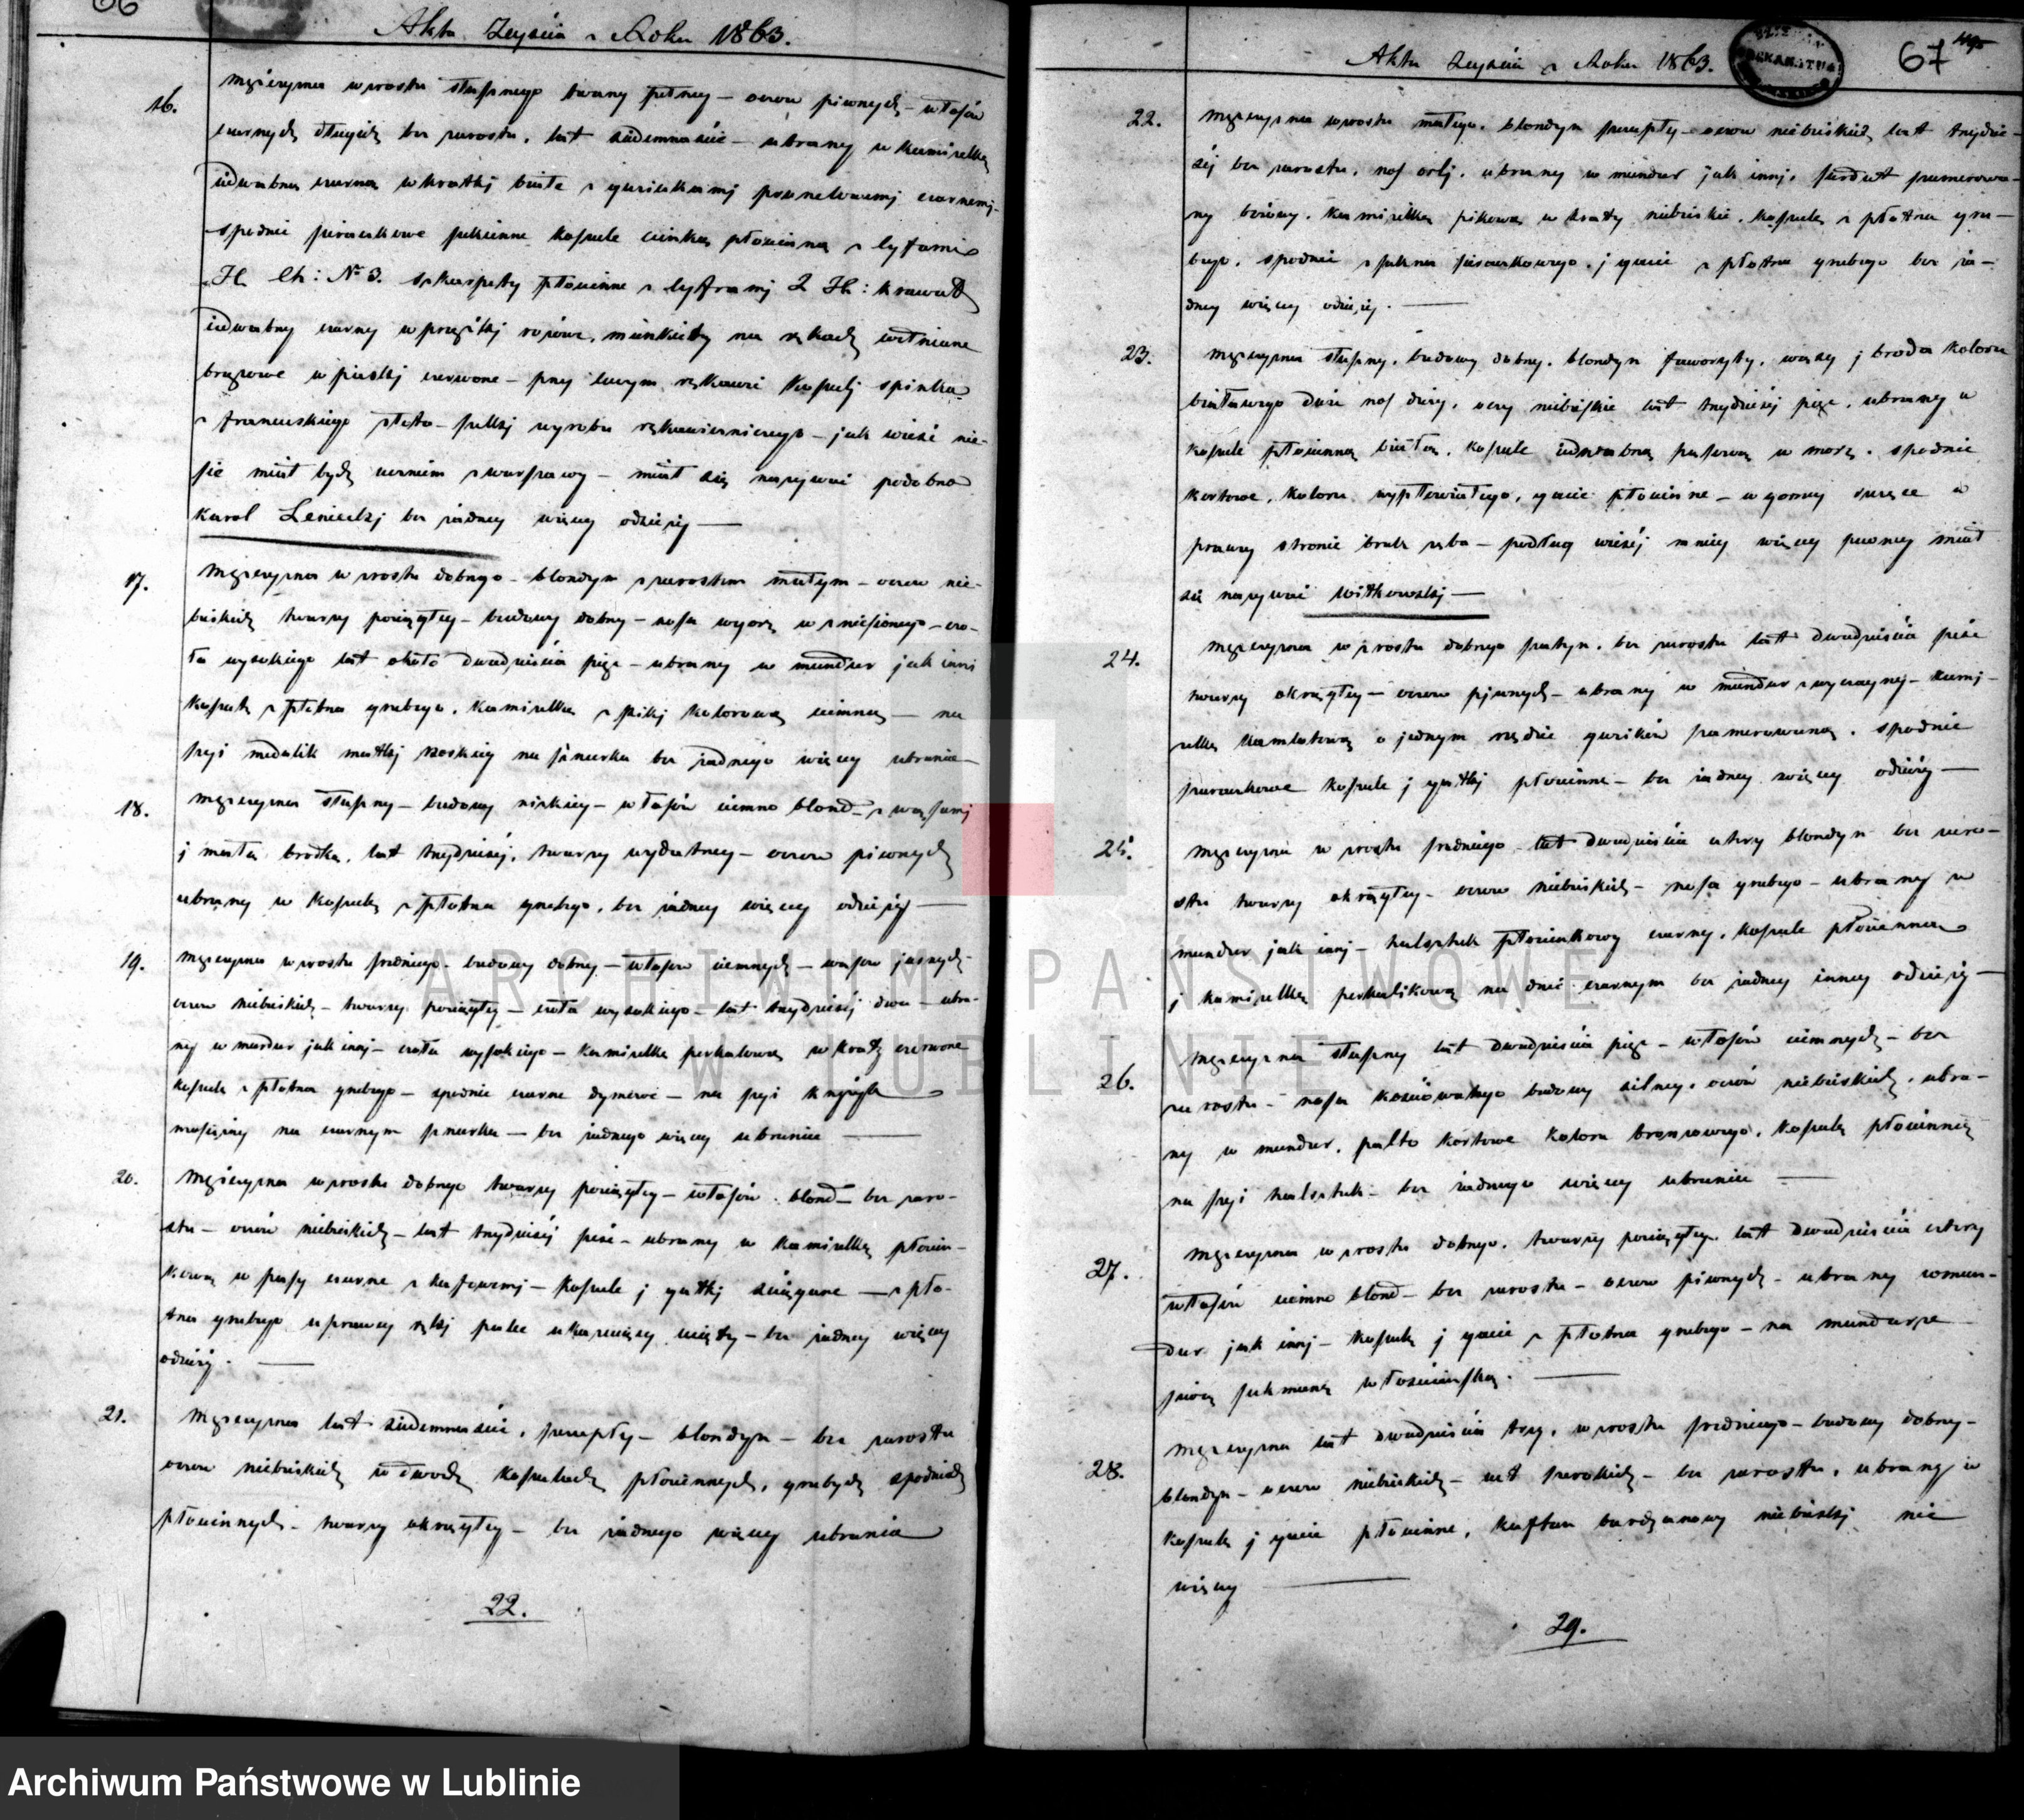 66
Akta Zejścia z Roku 1863.
16. Mężczyzna wzrostu słusznego twarzy pełney – oczów piwnych – włosów
czarnych długich bez zarostu, lat siedemnaście – ubrany w kamizelkę
jedwabną czarną w kratkj białe z guzikamj prunelowemj czarnemj –
spodnie pirackowe sukienne koszule cienką płócienną z lyframi
H. Ch: № 3. szkarpety płócienne z lyframj 2 H: krawat
jedwabny czarny w prążkj rożowe, mankiety na rękach wełniane
brązowe w paskj czerwone – przy lewym rękawie koszulj spinka
z francuskiego złota – szelkj wyrobu rękawiczniczego – jak wieść nie-
sie miał bydź uczniem z Warszawy – miał się nazywać podobno
Karol Lenieckj bez żadney więcey odzieży —
17. Mężczyzna wzrostu dobrego – blondyn z zarostem małym – oczów nie-
bieskich twarzy pociągłey – budowy dobrey – nosa w górę wzniesionego – czo-
ła wysokiego lat około dwadzieścia pięć – ubrany w mundur jak inni
koszulę z płótna grubego, kamizelka z pikj kolorową ciemną — na
szyi medalik matkj Boskiey na sznurku bez żadnego więcey ubrania —
18. Mężczyzna słuszny – budowy nizkiey – włosów ciemno blond – z wąsamj
j małą brodką, lat trzydzieścj, twarzy wydatney – oczów piwnych
ubrany w koszulę z płótna grubego, bez żadney więcey odzieży —
19. Mężczyzna wzrostu średniego – budowy dobrey – włosów ciemnych – wąsów jasnych –
oczów niebieskich – twarzy pociągłey – czoła wysokiego – lat trzydzieścj dwa – ubra-
ny w mundur jak innj – czoła wysokiego – kamizelka perkalowa w kratę czerwoną
koszula z płótna grubego – spodnie czarne dymowe – na szyi krzyżyk
mosiężny na czarnym sznurku — bez żadnego więcey ubrania —
20. Mężczyzna wzrostu dobrego twarzy pociągłey – włosów blond – bez zaro-
stu – oczów niebieskich – lat trzydzieścj sześć – ubrany w kamizelkę płócien-
kową w pasy czarne z kafowemj – koszule j gatkj zciągane — z płó-
tna grubego u prawey rękj palec ukazujący ucięty – bez żadney więcey
odzieży. —
21. Mężczyzna lat siedemnaście, szczupły – blondyn – bez zarostu
oczów niebieskich w dwóch koszulach płóciennych, grubych spodniach
płóciennych – twarzy okrągłey – bez żadnego więcey ubrania
22.
67
Akta Zejścia z Roku 1863.
22. Mężczyzna wzrostu małego, blondyn szczupły – oczów niebieskich lat trzydzie-
ścj bez zarostu, nos orlj, ubrany w mundur jak innj, surdut szamerowa-
ny beżowy, kamizelka pikowa w kraty niebieskie, koszula z płótna gru-
bego, spodnie z sukna szaraczkowego, j gacie z płótna grubego bez ża-
dney więcey odzieży. —
23. Mężczyzna słuszny, budowy dobrey, blondyn faworyty, wąsy j broda koloru
białawego duże nos duży, oczy niebieskie lat trzydzieścj pięć, ubrany w
koszule płócienną białą, koszule jedwabną paszową w morę, spodnie
kortowe, koloru wypłowiałego, gacie płócienne – w gorney szczęce w
prawey stronie brak zęba – podług wieścj mniey więcey pewney miał
się nazywać Witkowskj —
24. Mężczyzna wzrostu dobrego szatyn, bez zarostu lat dwadzieścia sześć
twarzy okrągłey – oczów pjwnych – ubrany w mundur zwyczayny – kamj-
zelkę kamlotową o jednym rzędzie guzików szamerowaną, spodnie
szaraczkowe koszule j gatkj płócienne – bez żadney więcey odzieży —
25. Mężczyzna wzrostu średniego lat dwadzieścia cztery blondyn bez zaro-
stu twarzy okrągłey – oczów niebieskich – nosa grubego – ubrany w
mundur jak innj – halsztuk płócienkowy czarny, koszule płócienna
j kamizelkę perkalikową na dnie czarnym bez żadney inney odzieży —
26. Mężczyzna słuszny lat dwadzieścia pięć – włosów ciemnych – bez
zarostu – nosa kościowatego budowy silney, oczów niebieskich, ubra-
ny w mundur, palto kortowe koloru bronzowego, koszulę płócienną
na szyi halsztuk – bez żadnego więcey ubrania —
27. Mężczyzna wzrostu dobrego, twarzy pociągłey lat dwadzieścia cztery
włosów ciemno blond – bez zarostu – oczów piwnych – ubrany w mun-
dur jak innj – koszulę j gacie z płótna grubego – na mundurze
siwą sukmanę włościańską. —
28. Mężczyzna lat dwadzieścia trzy, wzrostu średniego – budowy dobrey –
blondyn – oczów niebieskich – ust szerokich – bez zarostu, ubrany w
koszulę j gacie płócienne, kaftan barchanowy niebieskj nic
więcey —
29.
ARCHIWUM PAŃSTWOWE
W LUBLINIE
Archiwum Państwowe w Lublinie